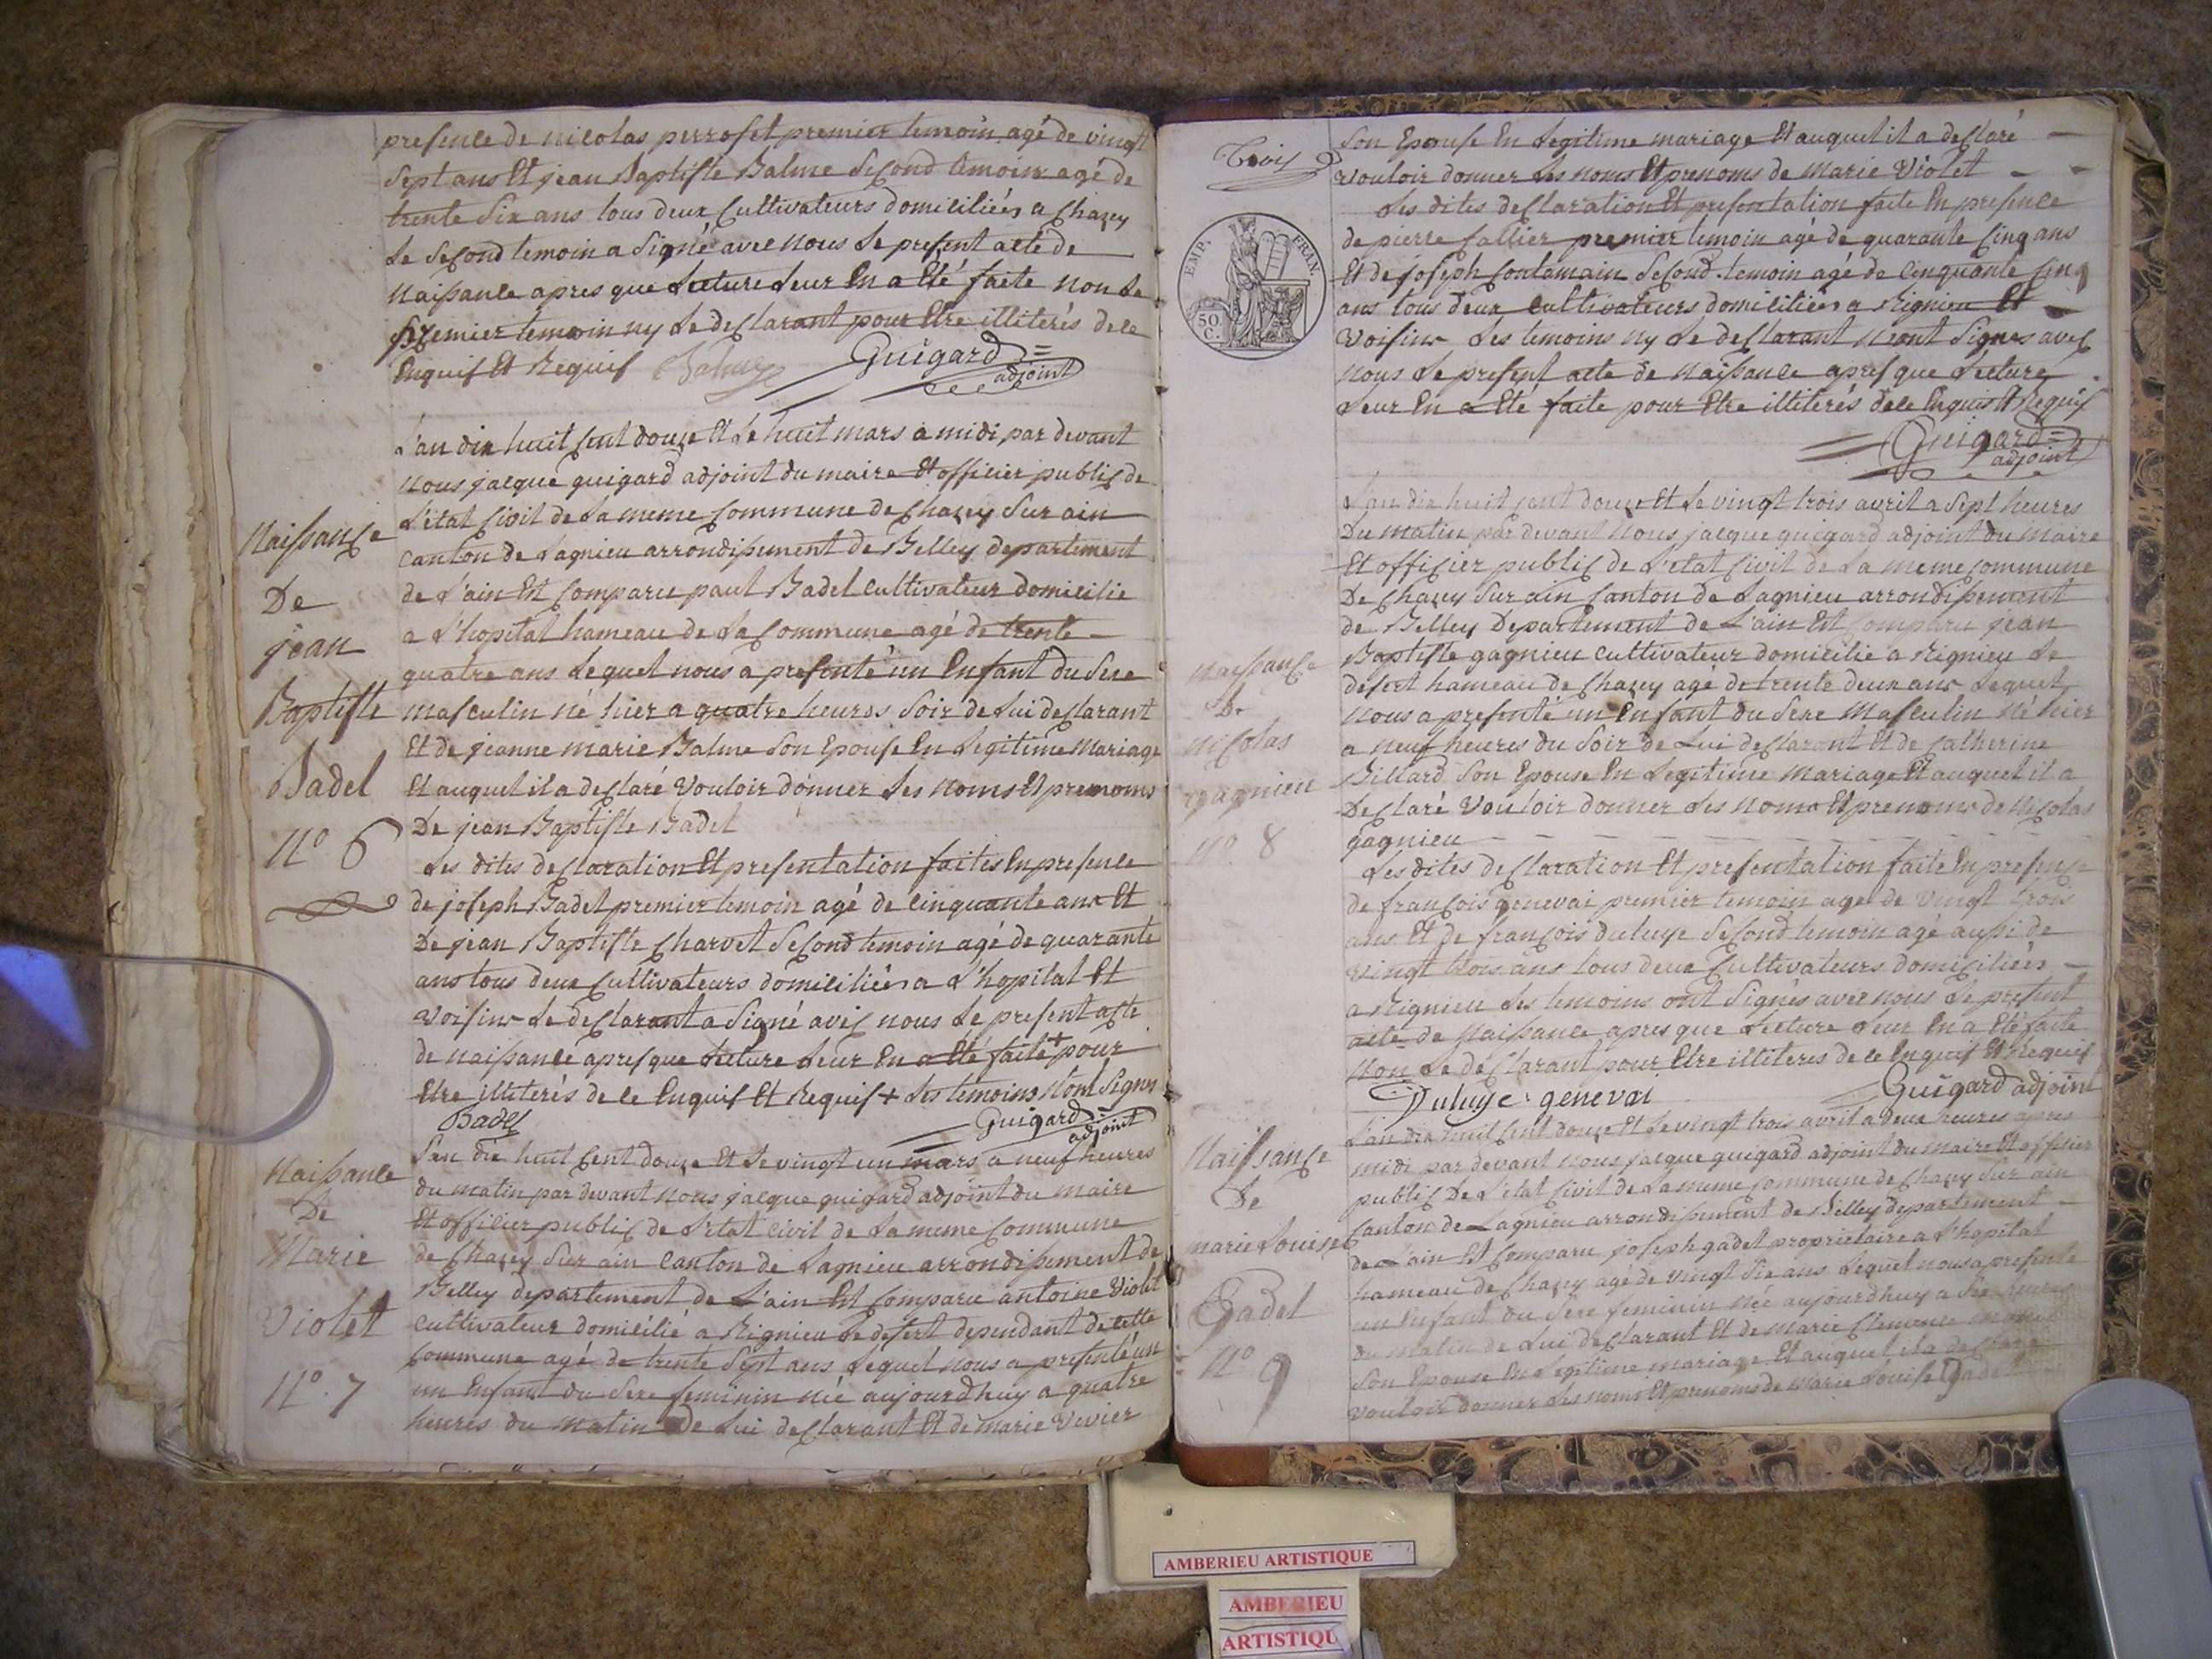 presence de nicolas perroset premier temoin agé de vingt
Sept ans Et jean Baptiste Balme Second temoin agé de
trente Six ans tous deux Cultivateurs domiciliés a Chazey
Le Second temoin a Signé avec nous Le present acte de
Naissance apres que Lecture Leur En a Eté faite non Le
premier temoin ny Le declarant pour Etre illiterés de ce
Enquis Et Requis Balme Guigard
adjoint
L'an dix huit Cent douze Et Le huit mars a midi par devant
Nous jacque guigard adjoint du maire Et officier public de
L'état Civil de La meme Commune de Chazey Sur ain
Canton de Lagnieu arrondissement de Belley departement
de L'ain Est Comparu paul Badel Cultivateur domicilie
a L'hopital hameau de La Commune agé de trente
quatre ans Lequel nous a presenté un Enfant du Sexe
masculin né hier a quatre heures Soir de Lui declarant
Et de jeanne marie Balme Son Epouse En Legitime Mariage
Et auquel il a declaré Vouloir donner Les Noms Et prenoms
De jean Baptiste Badel
Les dites declaration Et presentation faites En presence
de joseph Badel premier temoin agé de Cinquante ans Et
De jean Baptiste Charvet Second temoin agé de quarante
ans tous deux Cultivateurs domiciliés a L'hopital Et
Voisins Le declarant a Signé avec nous Le present acte
de naissance apres que Lecture Leur En a Eté faite + pour
Etre illiterés de ce Enquis Et Requis + Les temoins Nont Signes
Badel Guigard
adjoint
Naissance
De
jean
Baptiste
Badel
N° 6
L'an dix huit Cent douze Et Le vingt un mars a neuf heures
du matin par devant Nous jacque guigard adjoint du maire
Et officier public de L'etat Civil de La meme Commune
de Chazey Sur ain Canton de Lagnieu arrondissement de
Belley departement de L'ain Est Comparu antoine Violet
Cultivateur domicilié a Rignieu Le desert dependant de cette
Commune agé de trente Sept ans Lequel nous a presenté un
un Enfant du Sexe feminin née aujourdhuy a quatre
heures du matin De Lui declarant Et de marie Vivier
Naissance
De
Marie
Violet
N° 7
Trois
EMP. FRAN.
50
C.
Son Epouse En Legitime mariage Et auquel il a declaré
Vouloir donner Les noms Et prenoms de Marie Violet
Les dites declaration Et presentation faite En presence
de pierre Callier premier temoin agé de quarante Cinq ans
Et de joseph Contamain Second temoin agé de Cinquante Cinq
ans tous deux Cultivateurs domiciliés a Rignieu Et
Voisins Les temoins ny Le declarant N'ont Signes avec
Nous Le present acte de Naissance apres que Lecture
Leur En a Eté faite pour Etre illiterés de ce Enquis Et Requis
Guigard
adjoint
L'an dix huit Cent douze Et Le vingt trois avril a Sept heures
Du matin par devant Nous jacque guigard adjoint du maire
Et officier public de L'etat Civil de La meme Commune
De Chazey Sur ain Canton de Lagnieu arrondissement
de Belley Departement de L'ain Est Comparu jean
Baptiste gagnieu Cultivateur domicilié a Rignieu Le
desert hameau de Chazey agé de trente deux ans Lequel
Nous a presenté un Enfant du Sexe Masculin Né hier
a Neuf heures du Soir de Lui declarant Et de Catherine
Billard Son Epouse En Legitime Mariage Et auquel il a
Declaré Vouloir donner Les noms Et prenoms de Nicolas
gagnieu
Les dites declaration Et presentation faite En presence
de francois genevai premier temoin agé de Vingt trois
ans Et de francois duluye Second temoin agé aussi de
vingt trois ans tous deux Cultivateurs domiciliés
a Rignieu Les temoins ont Signés avec nous Le present
acte de Naissance apres que Lecture Leur En a Eté faite
Non Le declarant pour Etre illiteres de ce Enquis Et Requis
Duluye genevai Guigard adjoint
Naissance
De
Nicolas
gagnieu
N° 8
L'an dix huit Cent douze Et Le vingt trois avril a deux heures apres
midi par devant Nous jacque guigard adjoint du Maire Et officier
public De L'etat Civil de La meme Commune de Chazey Sur ain
Canton de Lagnieu arrondissement de Belley departement
de L'ain Est Comparu joseph gadet proprietaire a L'hopital
hameau de Chazey agé de vingt Six ans Lequel nous a presenté
un Enfant du Sexe feminin Née aujourdhuy a Six heures
du matin de Lui declarant Et de Marie Clemence
Son Epouse En Legitime mariage Et auquel il a declaré
Vouloir donner Les noms Et prenoms de marie Louise Gadet
Naissance
De
marie Louise
Gadet
N° 9
AMBERIEU ARTISTIQUE
AMBERIEU
ARTISTIQU